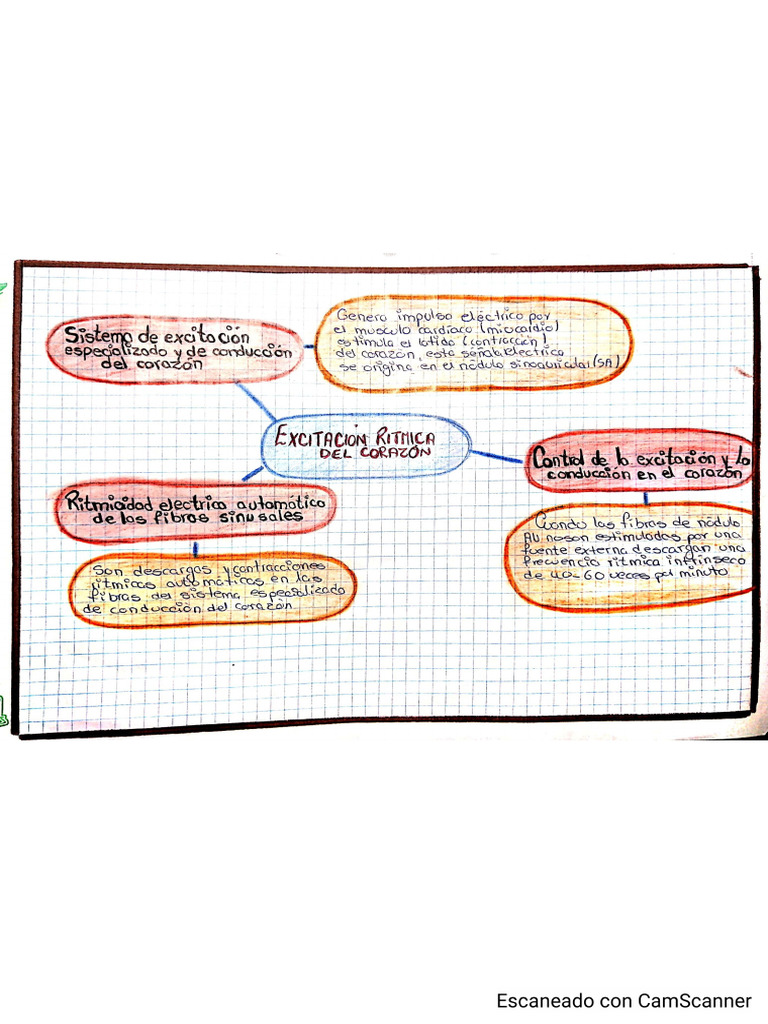 Sistema de excitación
especializado y de conducción
del corazón
Genera impulso eléctrico por
el musculo cardiaco (miocardio)
estimula el latido (contracción)
del corazón, esta señal electrica
se origina en el nódulo sinoauricular (SA)
EXCITACIÓN RITMICA
DEL CORAZÓN
Control de la excitación y la
conducción en el corazón
Ritmicidad electrica automática
de las fibras sinusales
Cuando las fibras de nódulo
AV no son estimuladas por una
fuente externa descargan una
frecuencia rítmica intrínseco
de 40-60 veces por minuto
Son descargas y contracciones
ritmicas automáticas en las
fibras del sistema especializado
de conducción del corazón
Escaneado con CamScanner